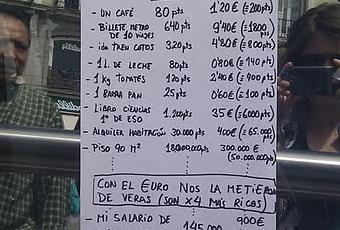 - UN CAFÉ 80 pts 1'20 € (≡ 200 pts)
- BILLETE METRO DE 10 VIAJES 640 pts 9'40€ (≡ 1800 pts)
- ida TREN COTOS 320 pts 4'80€ (≡ 800 pts)
- 1 L. DE LECHE 80 pts 0'80€ (≡ 140 pts)
- 1 kg TOMATES 120 pts 2'40€ (≡ 400 pts)
- 1 BARRA PAN 25 pts 0'60€ (≡ 100 pts)
- LIBRO CIENCIAS 1º DE ESO 1.200 pts 35€ (≡ 6000 pts)
- ALQUILER HABITACIÓN 30.000 pts 400€ (≡ 65.000 pts)
- PISO 90 M² pts 300.000 €
(50.000.000 pts)
CON EL €URO NOS LA METIERON
DE VERAS (SON x4 MÁS RICOS)
- MI SALARIO DE 900€
145.000